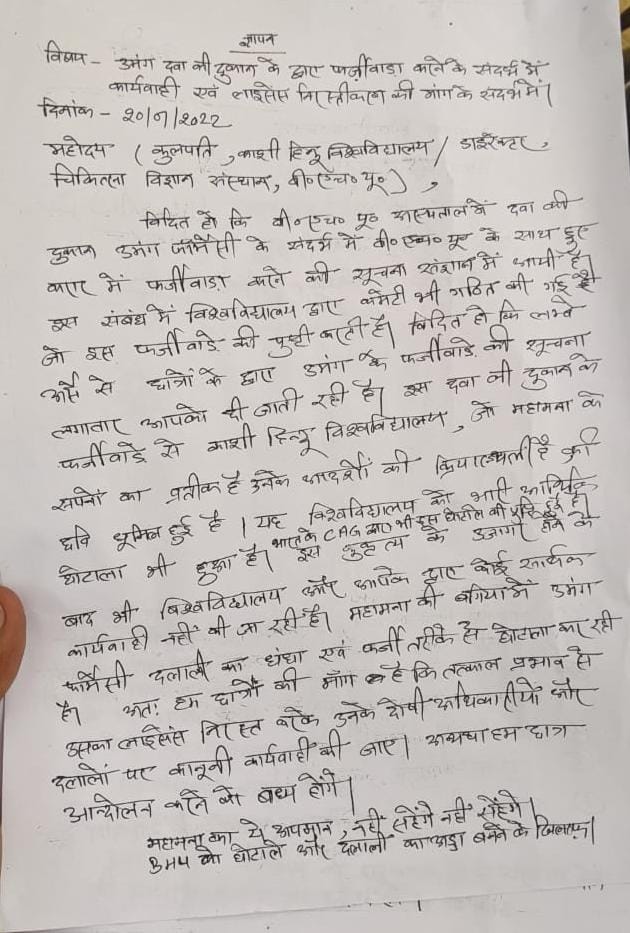 ज्ञापन
विषय - उमंग दवा की दुकान के द्वारा फर्जीवाड़ा करने के संदर्भ में
कार्यवाही एवं लाइसेंस निरस्तीकरण की मांग के संदर्भ में।
दिनांक - 20/07/2022
महोदय (कुलपति, काशी हिन्दू विश्वविद्यालय / डाइरेक्टर,
चिकित्सा विज्ञान संस्थान, बी०एच०यू०),
विदित हो कि बी०एच०यू० अस्पताल में दवा की
दुकान उमंग फार्मेसी के संदर्भ में बी०एच०यू के साथ हुए
करार में फर्जीवाड़ा करने की सूचना संज्ञान में आयी है।
इस संबंध में विश्वविद्यालय द्वारा कमेटी भी गठित की गई है
जो इस फर्जीवाड़े की पुष्टी करती है। विदित हो कि लम्बे
अर्से से छात्रों के द्वारा उमंग के फर्जीवाड़े की सूचना
लगातार आपको दी जाती रही है। इस दवा की दुकान के
फर्जीवाड़े से काशी हिन्दू विश्वविद्यालय, जो महामना के
सपनों का प्रतीक है उनके आदर्शों की क्रियास्थली है की
छवि धूमिल हुई है। यह विश्वविद्यालय को भारी आर्थिक
घोटाला भी हुआ है। भारत के CAG द्वारा भी इस घोटाले की पुष्टि हुई है। इस कुकृत्य के उजागर होने के
बाद भी विश्वविद्यालय और आपके द्वारा कोई सार्थक
कार्यवाही नहीं की जा रही है। महामना की बगिया में उमंग
फार्मेसी दलाली का धंधा एवं फर्जी तरीके से घोटाला कर रही
है। अतः हम छात्रों की माँग है कि तत्काल प्रभाव से
उसका लाइसेंस निरस्त करके उनके दोषी अधिकारीयों और
दलालों पर कानूनी कार्यवाही की जाए। अन्यथा हम छात्र
आन्दोलन करने को बाध्य होंगे।
महामना का ये अपमान, नहीं सहेंगे नहीं सहेंगे।
BHU को घोटाले और दलाली का अड्डा बनने के खिलाफ।